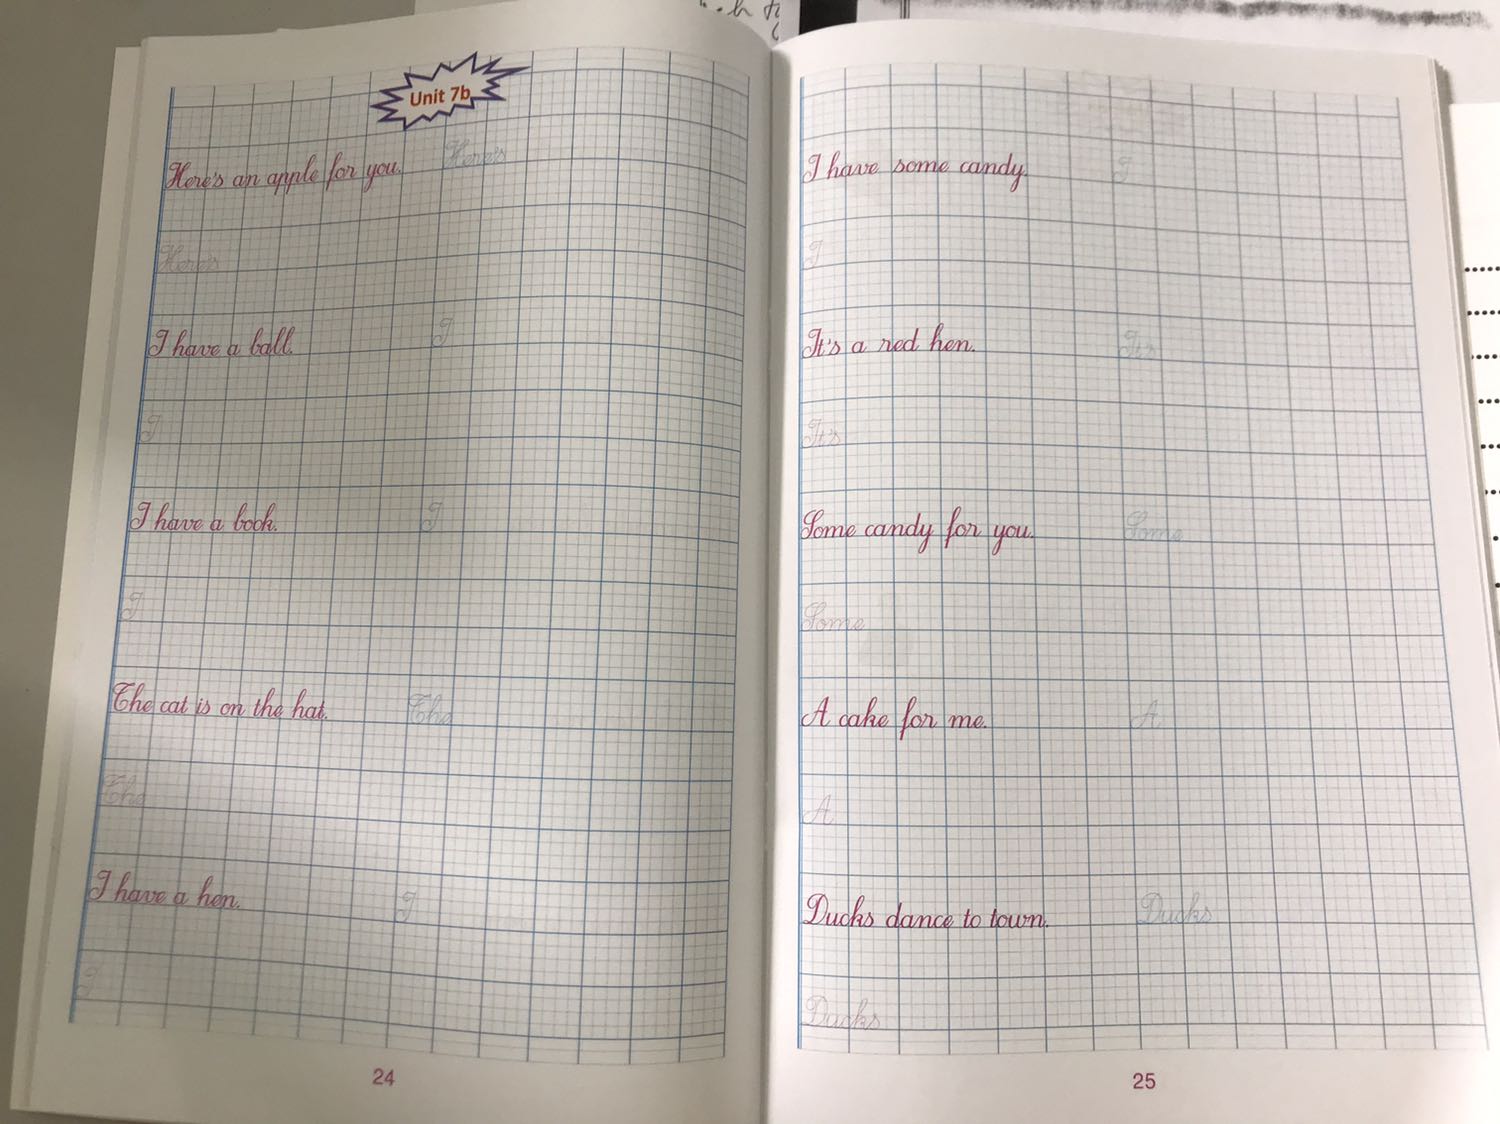 Unit 7b
Here's an apple for you. Here's
Here's
I have a ball. I
I
I have a book. I
I
The cat is on the hat. The
The
I have a hen. I
I
24
I have some candy. I
I
It's a red hen. It's
It's
Some candy for you. Some
Some
A cake for me. A
A
Ducks dance to town. Ducks
Ducks
25